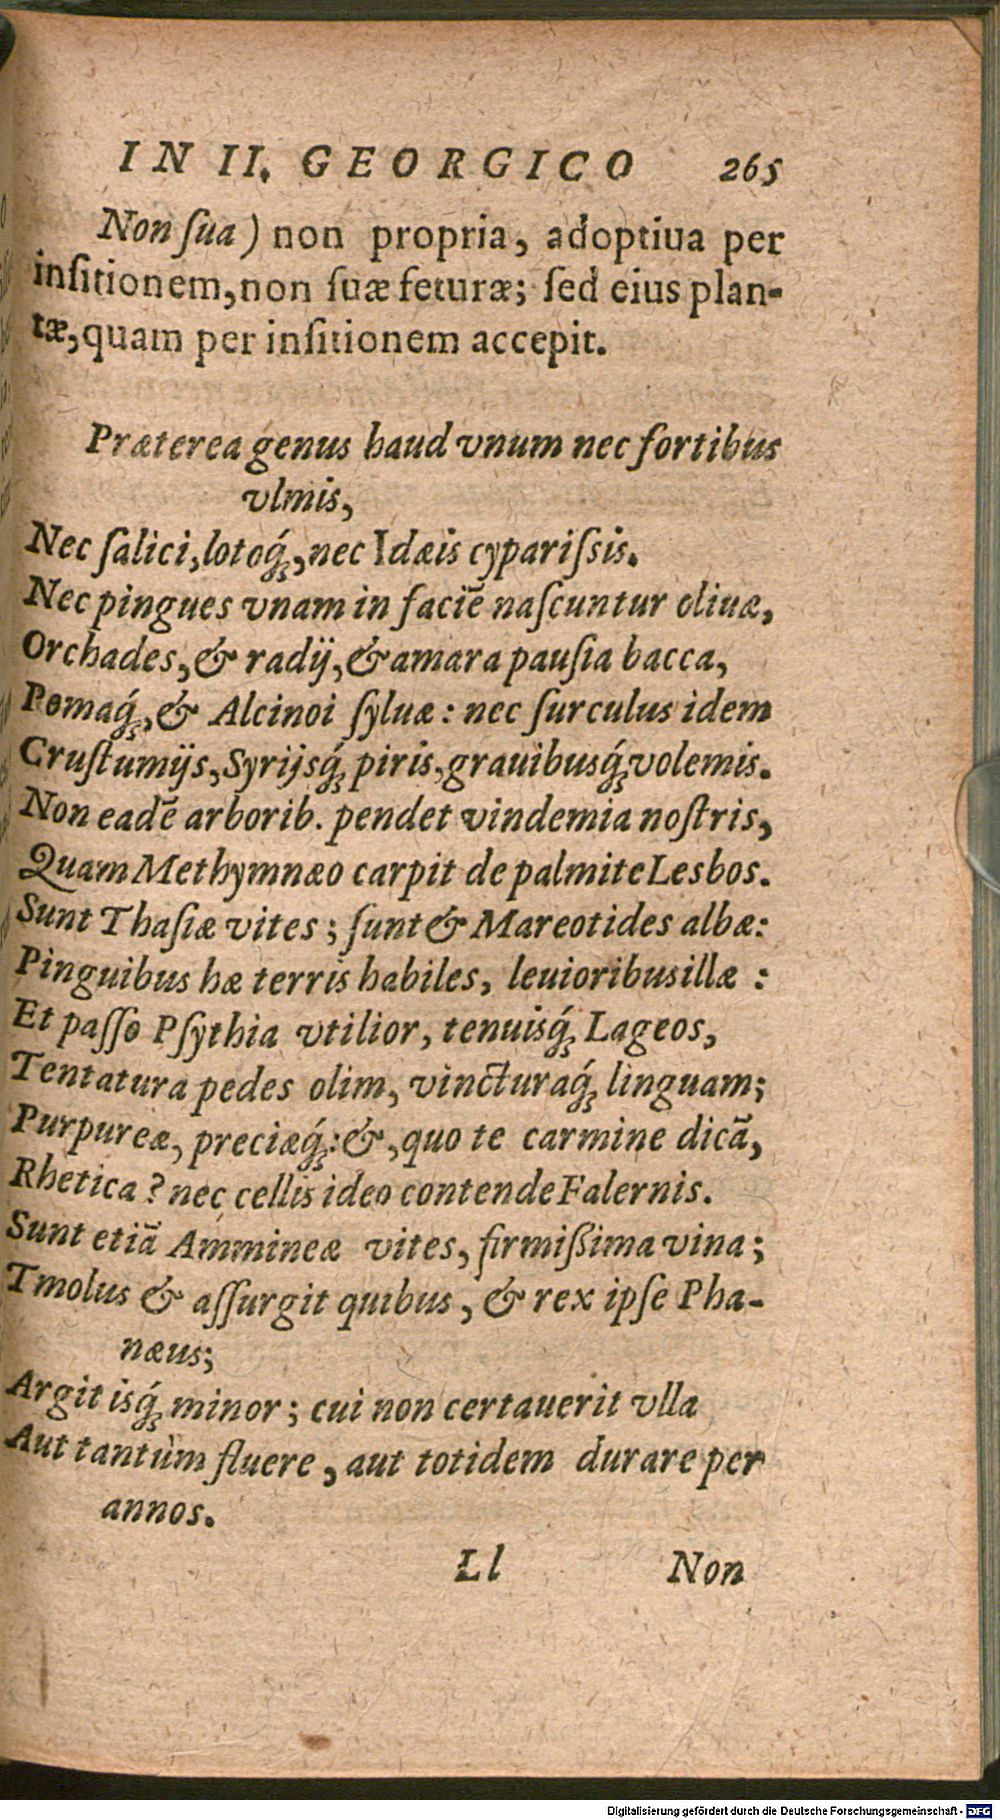 IN II. GEORGICO 265
Non ſua ) non propria, adoptiua per
inſitionem, non ſuæ feturæ; ſed eius plan-
tæ, quam per inſitionem accepit.
Præterea genus haud vnum nec fortibus
vlmis,
Nec ſalici, lotoq́;, nec Idæis cypariſsis.
Nec pingues vnam in faciē naſcuntur oliuæ,
Orchades, & radij, & amara pauſia bacca,
Pomaq́;, & Alcinoi ſyluæ: nec ſurculus idem
Cruſtumijs, Syrijsq́; piris, grauibusq́; volemis.
Non eadē arborib. pendet vindemia noſtris,
Quam Methymnæo carpit de palmite Lesbos.
Sunt Thaſiæ vites; ſunt & Mareotides albæ:
Pinguibus hæ terris habiles, leuioribus illæ :
Et paſſo Pſythia vtilior, tenuisq́; Lageos,
Tentatura pedes olim, vincturaq́; linguam;
Purpureæ, preciæq́;: &, quo te carmine dicā,
Rhetica? nec cellis ideo contende Falernis.
Sunt etiā Ammineæ vites, firmiſsima vina;
Tmolus & aſſurgit quibus, & rex ipſe Pha-
næus;
Argitisq́; minor; cui non certauerit vlla
Aut tantùm fluere, aut totidem durare per
annos.
Ll Non
Digitalisierung gefördert durch die Deutsche Forschungsgemeinschaft - DFG